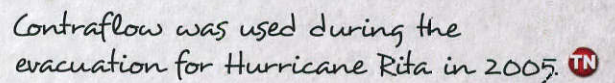 Contraflow was used during the
evacuation for Hurricane Rita in 2005. TN